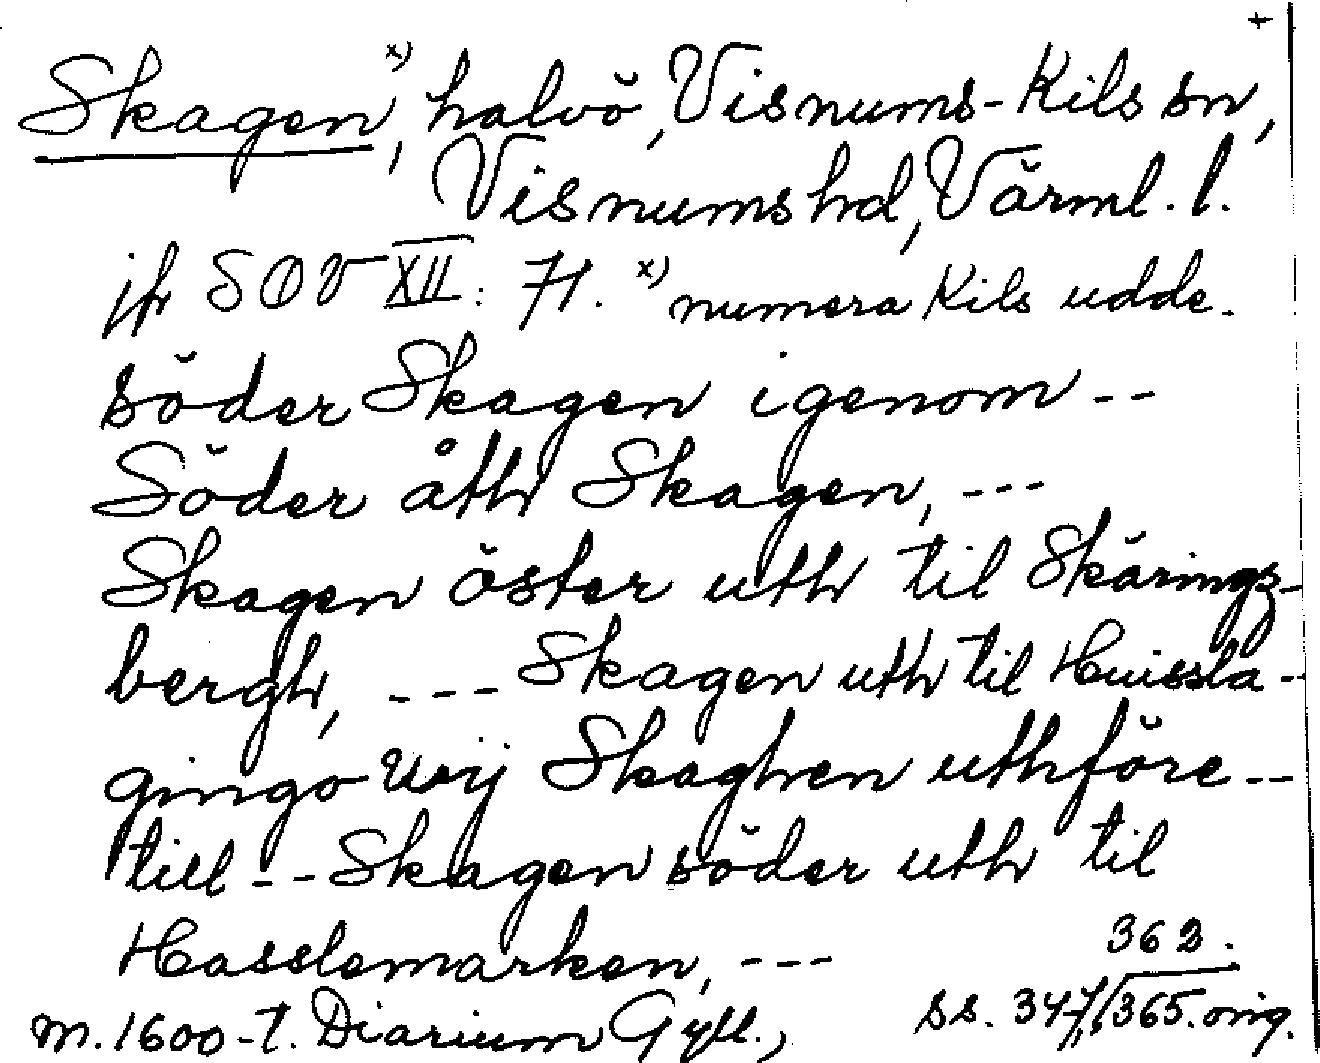 +
Skagen x), halvö, Visnums-Kils sn,
Visnums hd, Värml. l.
jfr SOV XII: 71. x) numera Kils udde.
söder Skagen igenom --
Söder åth Skagen, ---
Skagen öster uth til Skäringz-
bergh, --- Skagen uth til Huissla --
gingo wij Skaghen uthföre --
till -- Skagen söder uth til
Hasslemarken, ---
362.
m. 1600-t. Diarium Gyll., ss. 347, 365. orig.